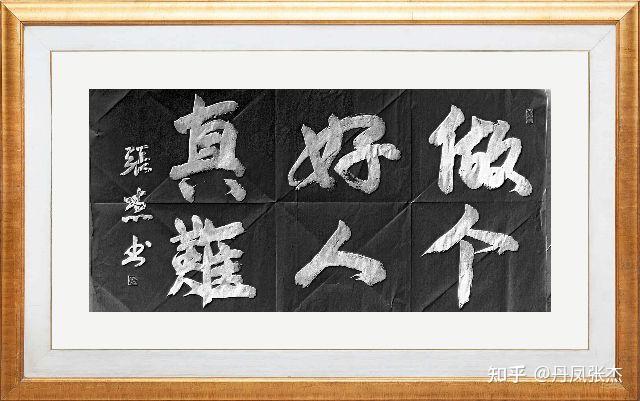 做个
好人
真難
張杰书
知乎 @丹凤张杰